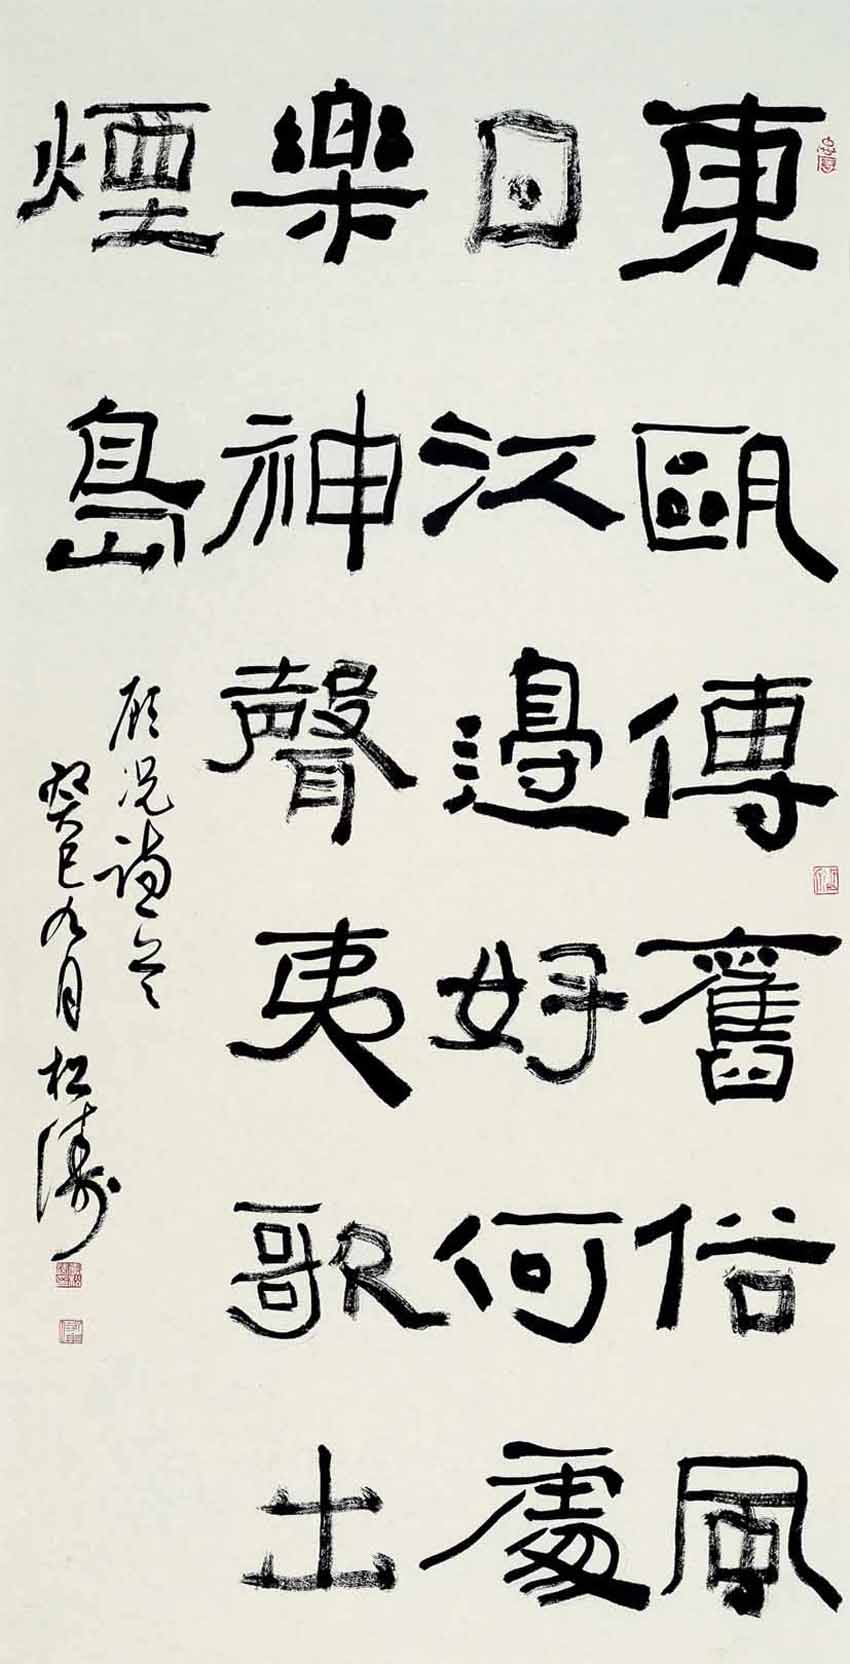 東甌傳舊俗風
日江邊好何處
樂神聲夷歌出
煙島
顧況詩意
癸巳九月松濤